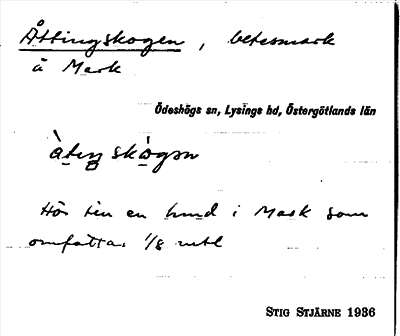 Åttingskogen, betesmark
å Mark
Ödeshögs sn, Lysings hd, Östergötlands län
àteŋskógən
Hör till en hmd i Mark som
omfattar 1/8 mtl
STIG STJÄRNE 1936